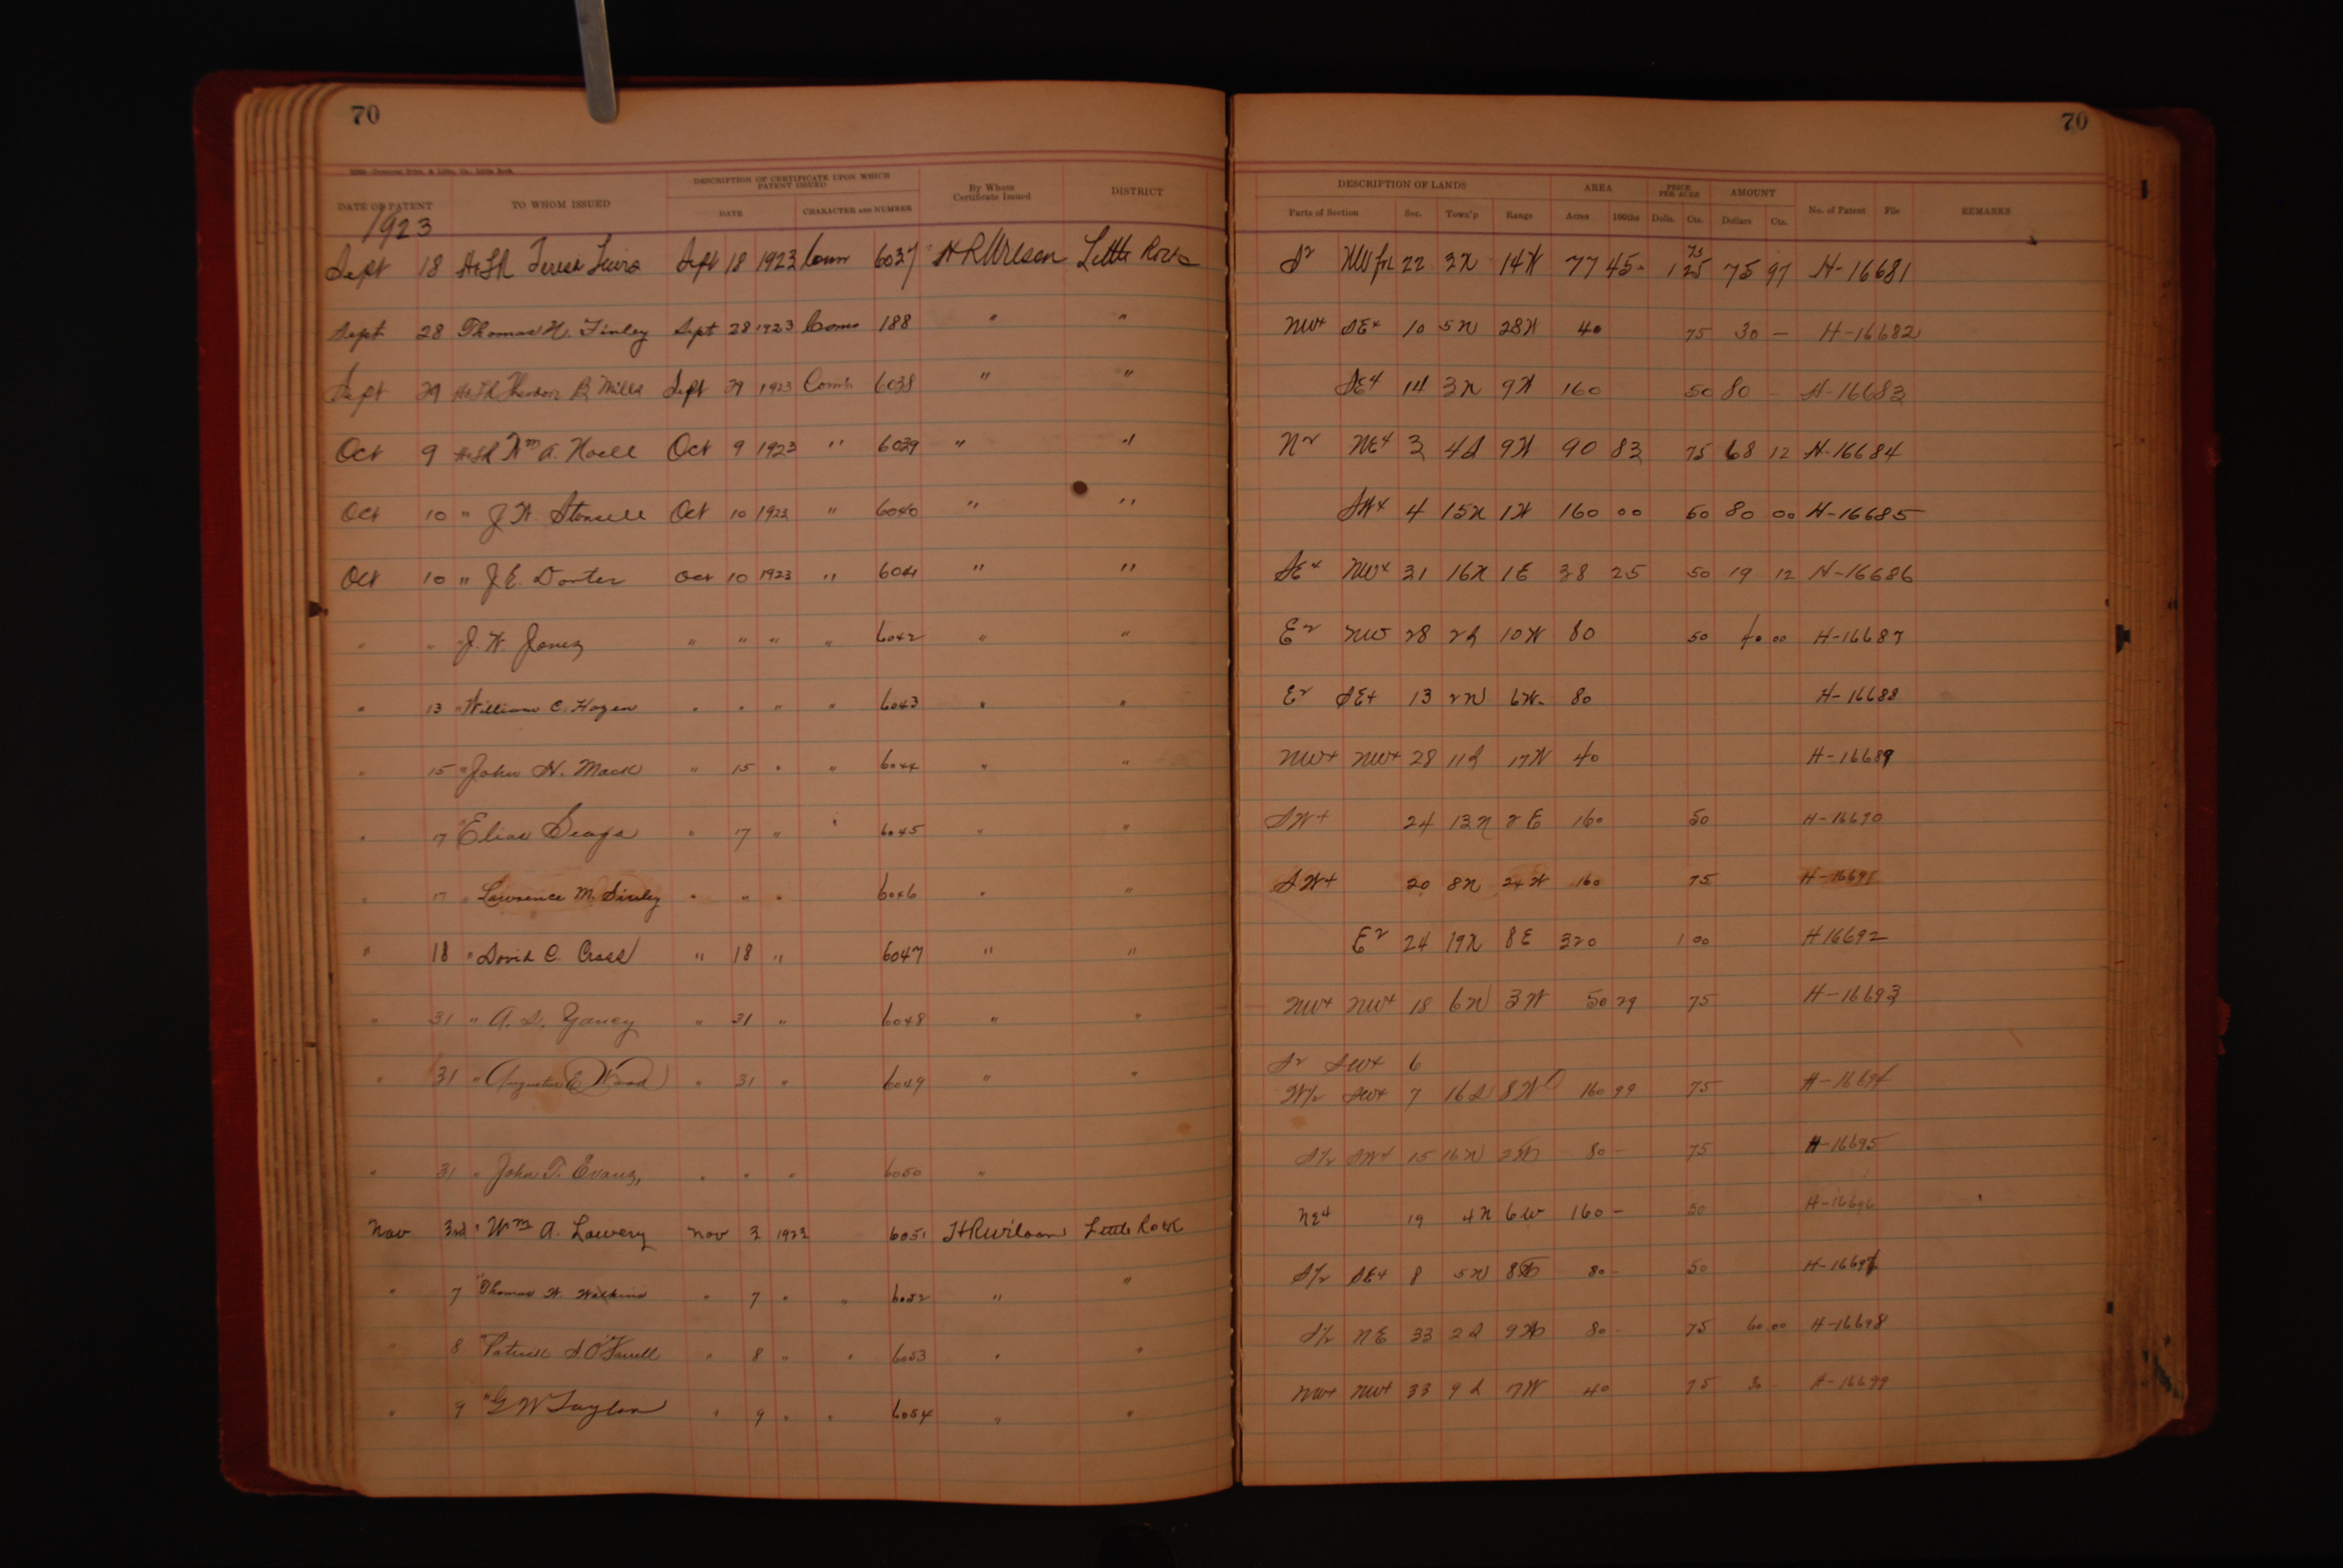 70
DATE OF PATENT TO WHOM ISSUED DESCRIPTION OF CERTIFICATE UPON WHICH PATENT ISSUED By Whom Certificate Issued DISTRICT
DATE CHARACTER AND NUMBER
1923
Sept 18 Sept 18 1923 6037 H R Wilson Little Rock
Sept 28 Thomas H. Finley Sept 28 1923 Coms 188 " "
Sept 29 B. Mills Sept 29 1923 6038 " "
Oct 9 Wm A. Noell Oct 9 1923 " 6039 " "
Oct 10 " J. W. Oct 10 1923 " 6040 " "
Oct 10 " J. E. Oct 10 1923 " 6041 " "
" " " J. W. Jones " " " " 6042 " "
" 13 " William C. Hogan " " " " 6043 " "
" 15 " John H. Mack " 15 " " 6044 " "
" 17 " Elias " 17 " " 6045 " "
" 17 " Lawrence M. " " " 6046 " "
" 18 " David C. Cross " 18 " 6047 " "
" 31 " A. S. Yancy " 31 " 6048 " "
" 31 " Augustus E Wood " 31 " 6049 " "
" 31 " John T. Evans, " " " 6050 "
Nov 3rd " Wm A. Lowery Nov 3 1923 6051 H R Wilson Little Rock
" 7 " Thomas W. Watkins " 7 " " 6052 " "
" 8 " Patrick S O'Farrell " 8 " " 6053 " "
" 9 " G W Taylor " 9 " " 6054 " "
70
DESCRIPTION OF LANDS AREA PRICE PER ACRE AMOUNT No. of Patent File REMARKS
Parts of Section Sec. Town'p Range Acres 100ths Dolls. Cts. Dollars Cts.
75
S2 NW frl 22 3N 14W 77 45 1 25 75 97 H-16681
NW4 SE4 10 5N 28W 40 75 30 — H-16682
SE4 14 3N 9W 160 50 80 - H-16683
N2 NE4 3 4S 9W 90 83 75 68 12 H-16684
SW4 4 15N 1W 160 00 50 80 00 H-16685
SE4 NW4 31 16N 1E 38 25 50 19 12 H-16686
E2 NW 28 2S 10W 80 50 40 00 H-16687
E2 SE4 13 2N 6W 80 H-16688
NW4 NW4 28 11S 17W 40 H-16689
SW4 24 13N 2E 160 50 H-16690
SW4 20 8N 24W 160 75 H-16691
E2 24 19N 8E 320 1 00 H 16692
NW4 NW4 18 6N 3W 50 29 75 H-16693
S2 SW4 6
W/2 SW4 7 16S 8W 160 99 75 H-16694
S/2 SW4 15 16N 80 - 75 H-16695
NE4 19 4N 6W 160 - 50 H-16696
S/2 SE4 8 5N 8W 80 - 50 H-16697
S/2 NE 33 2S 9W 80 - 75 60 00 H-16698
NW4 NW4 33 9S 17W 40 75 30 - H-16699